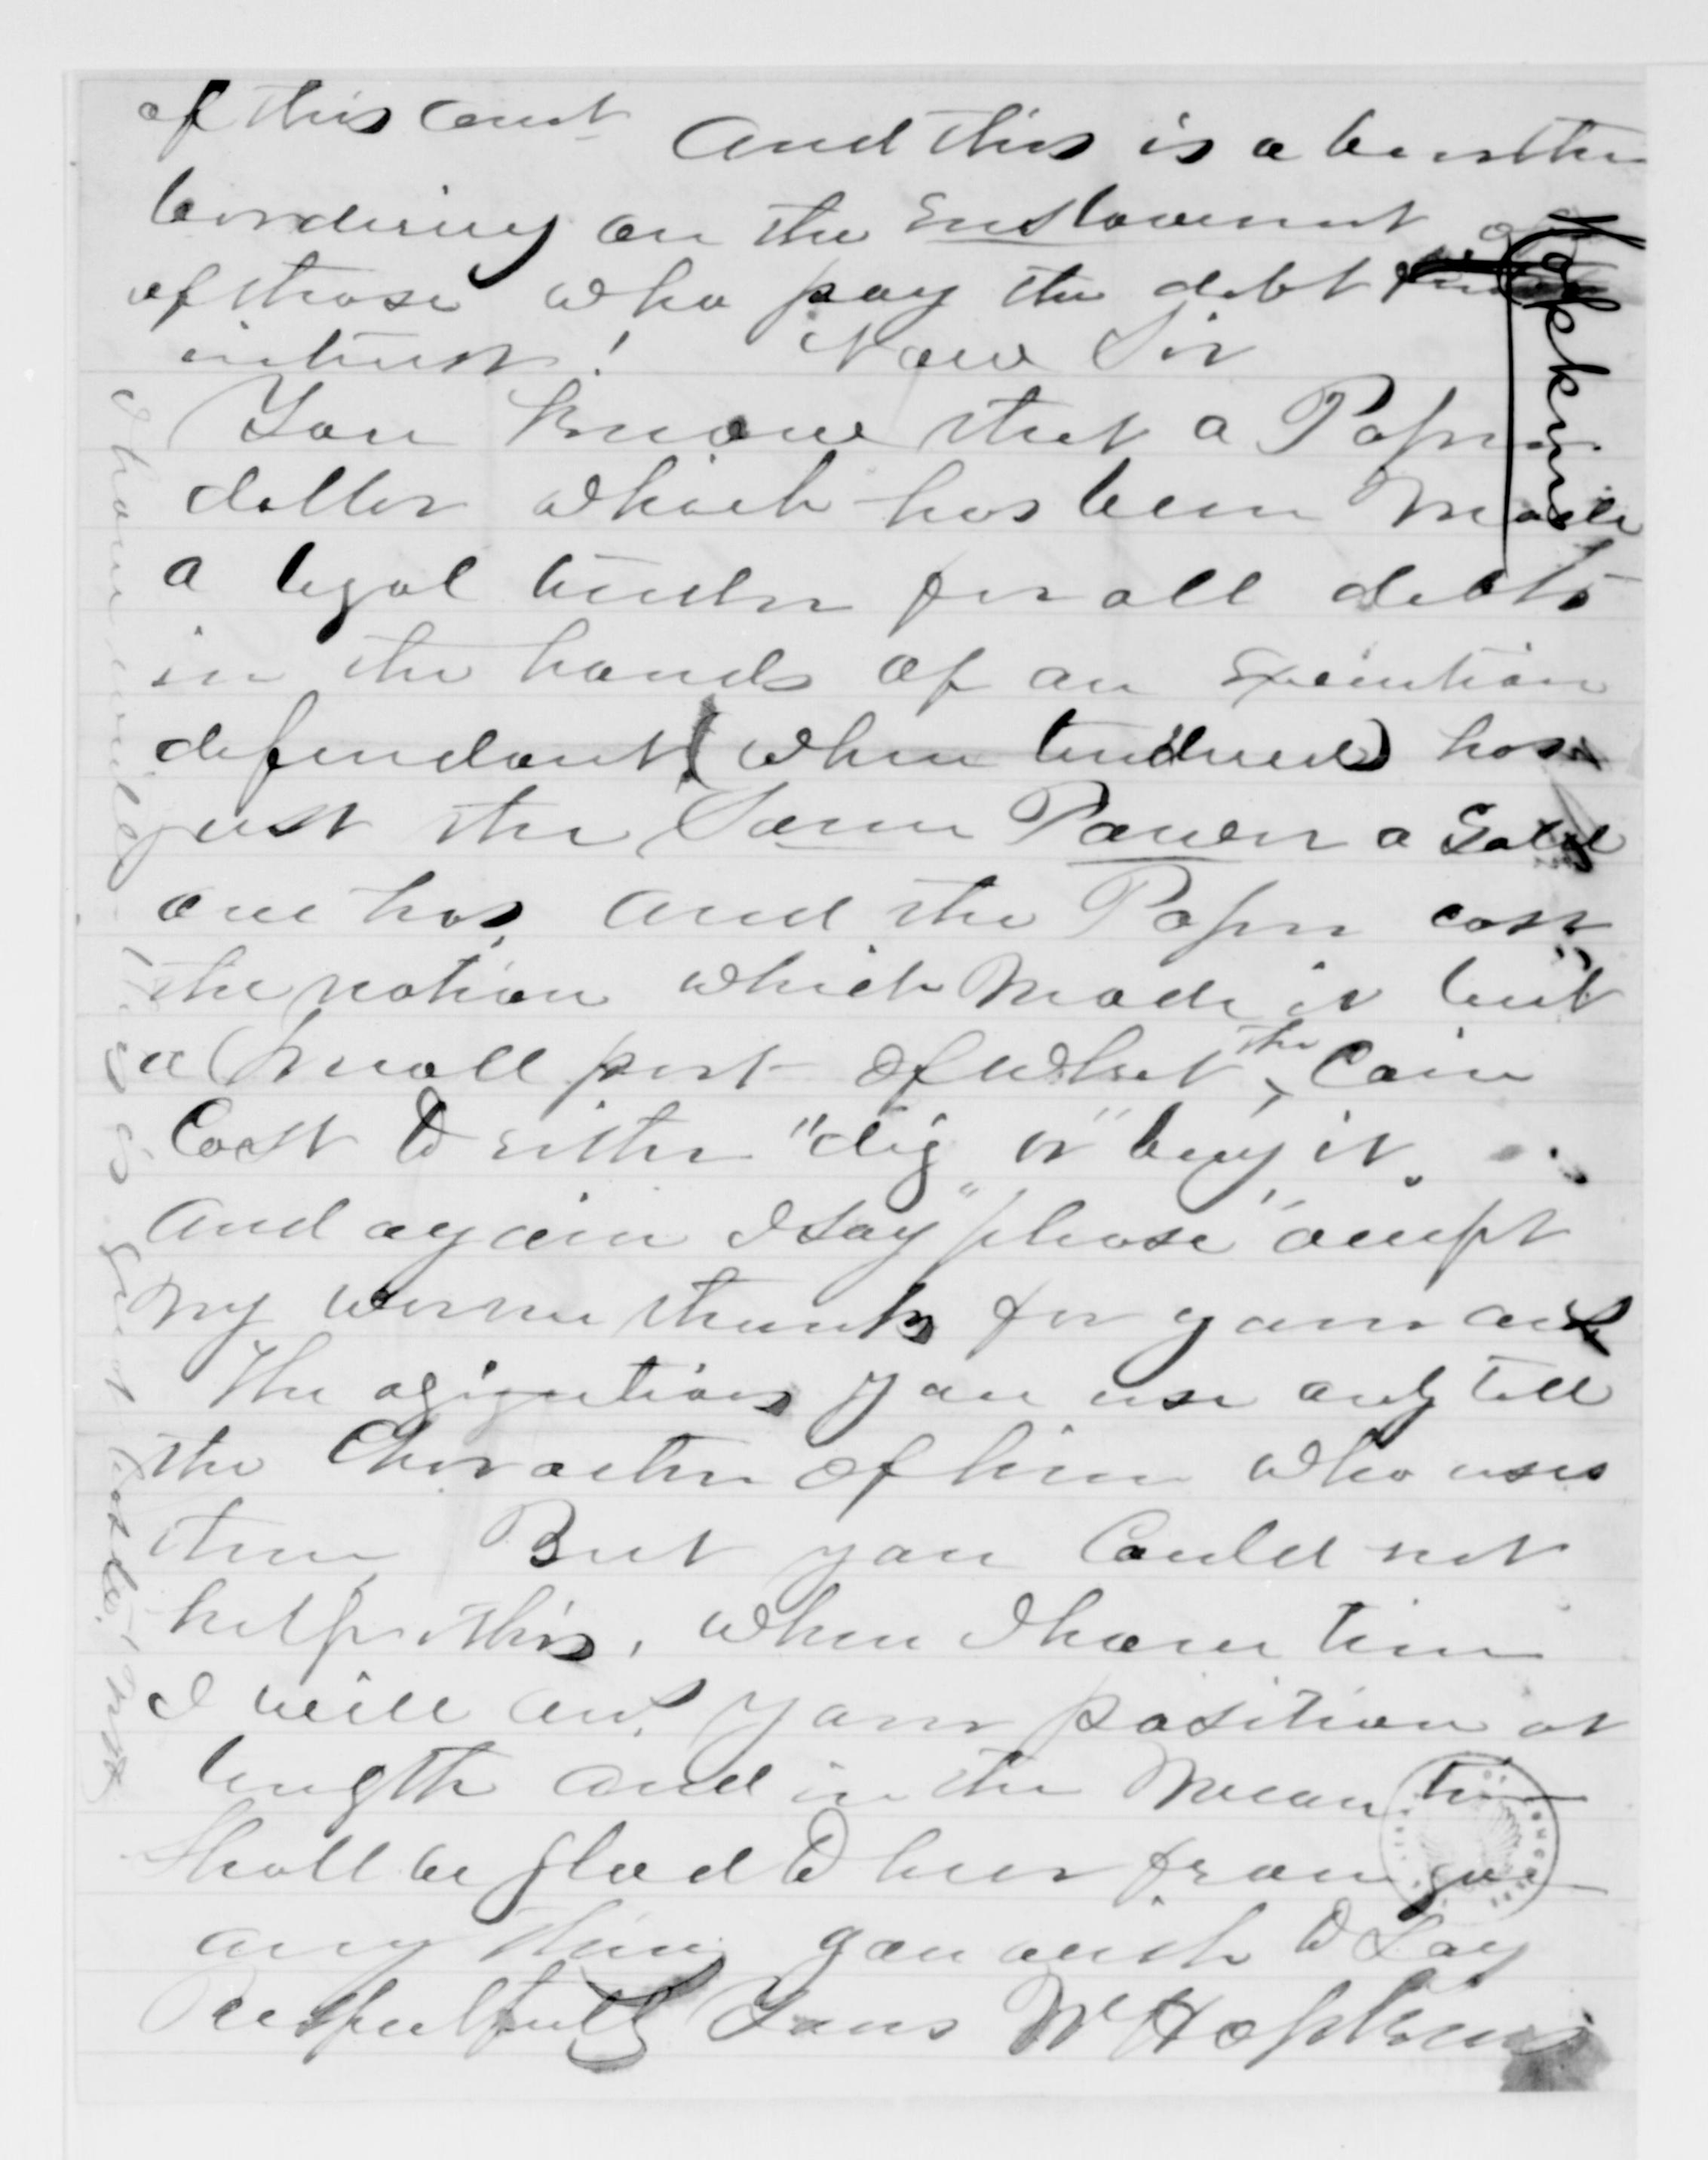 of this amt And this is a burthen
bordering on the Enslavement
of those who pay the debt
interest! Now Sir
You Know that a Paper
dollar which has been Made
a legal tender for all debts
in the hands of an Execution
defendant (when tendered) has
just the Same Power a Gold
one has, and the Paper cost
the nation which Made it but
a Small part of what the Coin
Cost to either "dig" or "buy it".
And again I say "please" accept
my warm thanks for your
The you use only tell
the Character of him who uses
them, But you Could not
help this, when I have time
I will ans. your position at
length and in the Mean time
Shall be glad to hear from you
any thing you wish to Say
Respectfully Yours W Hopkins
Hopkins
I have